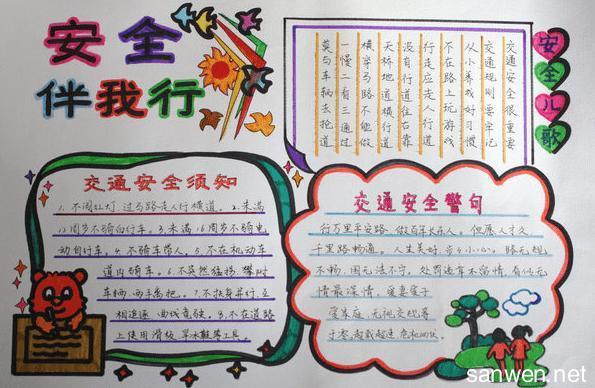 安全
伴我行
安全儿歌
交通安全很重要
交通规则要牢记
从小养成好习惯
不在路上玩游戏
行走应走人行道
没有行道往右靠
天桥地道横行道
横穿马路不能做
一慢二看三通过
莫与车辆去抢道
交通安全须知
1.不闯红灯,过马路走人行横道。2.未满
12周岁不骑自行车。3.未满16周岁不骑电
动自行车。4.不骑车带人。5.不在机动车
道内骑车。6.不突然猛拐、攀附
车辆、两手离把。7.不扶身并行、互
相追逐、曲线竞驶。8.不在道路
上使用滑板、旱冰鞋等工具。
交通安全警句
行万里平安路,做百年长乐人。但愿人长久,
千里路畅通。人生美好,步步小心。路无规
不畅,国无法不宁。处罚违章不留情,看似无
情最深情。爱妻爱子
爱家庭,无视交规等
于零。超载超速,危机四伏。
sanwen.net